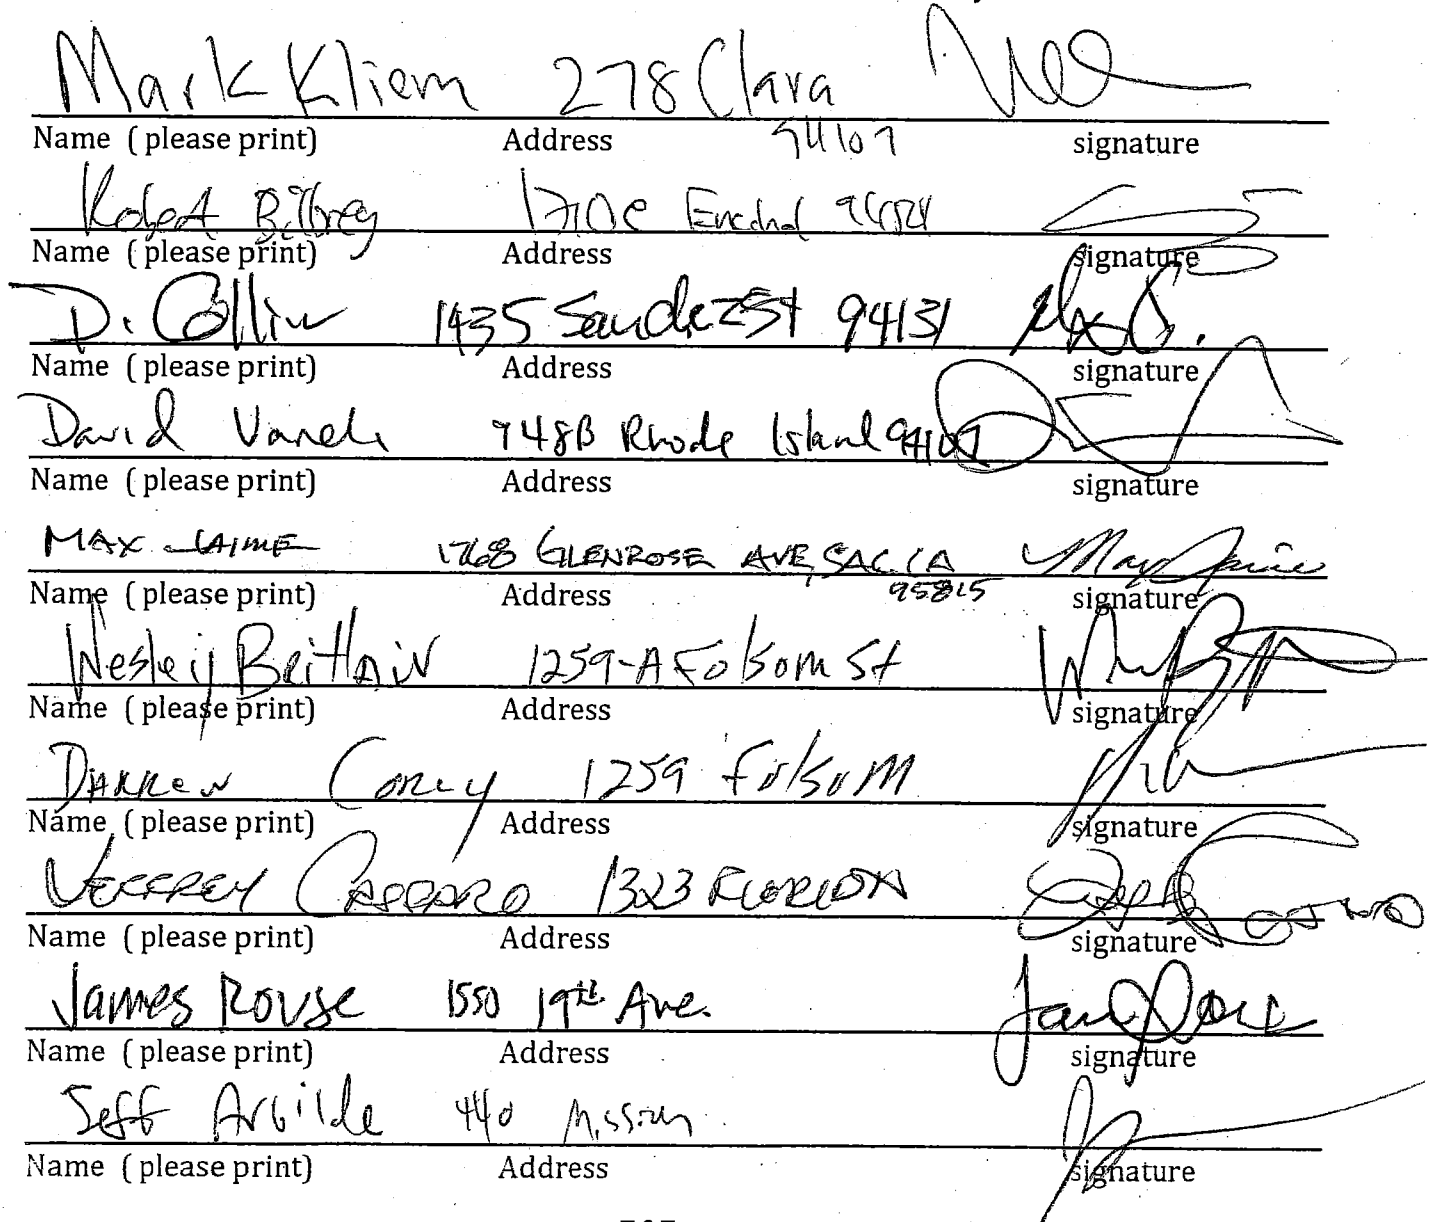 Mark Kliem 278 Clara
Name ( please print) Address 94107 signature
Robert Bilbrey Encinal
Name ( please print) Address signature
D. Collin 1435 Sanchez St 94131
Name ( please print) Address signature
David 948B Rhode Island 94107
Name ( please print) Address signature
MAX JAIME 1768 GLENROSE AVE, SAC CA Max Jaime
Name ( please print) Address 95815 signature
Wesley Brittain 1259-A Folsom St
Name ( please print) Address signature
DARREN Corey 1259 Folsom
Name ( please print) Address signature
JEFFREY 1323 FLORIDA
Name ( please print) Address signature
James Rouse 1550 19th Ave.
Name ( please print) Address signature
Jeff Arbilde 440 Mission
Name ( please print) Address signature